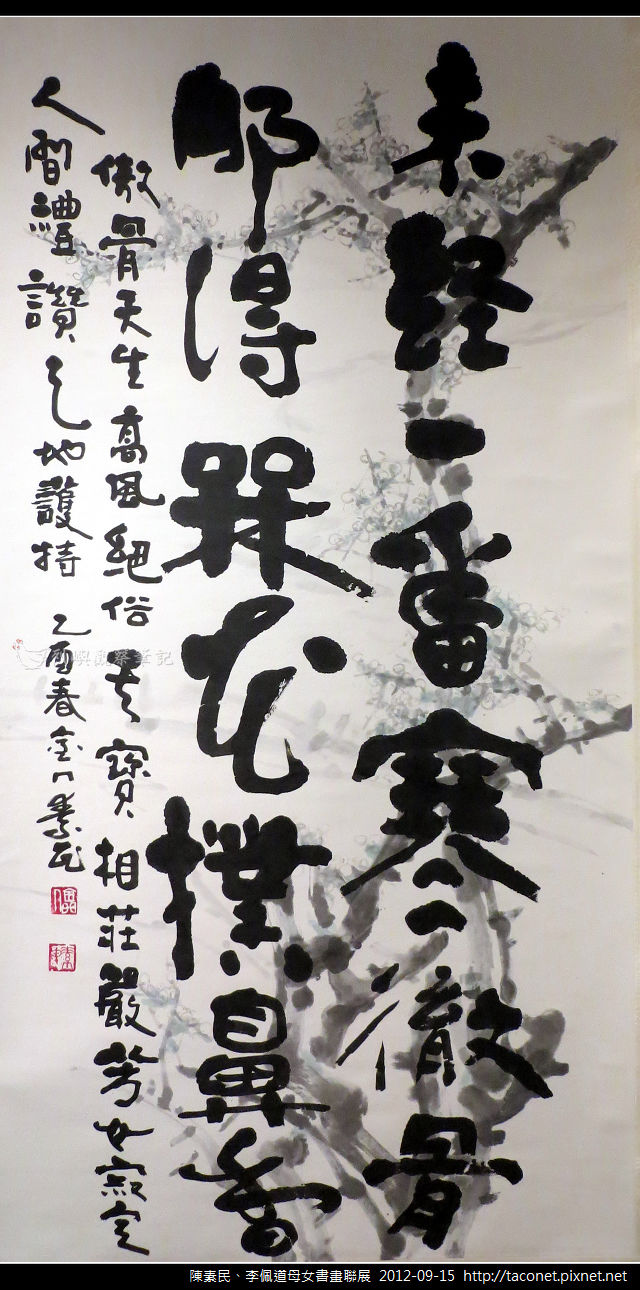 未經一番寒徹骨
那得槑花撲鼻香
傲骨天生高風絕俗寶相莊嚴寂定
人間禮讚天地護持 乙酉春金門素民
嶼觀察筆記
陳素民、李佩道母女書畫聯展 2012-09-15 http://taconet.pixnet.net